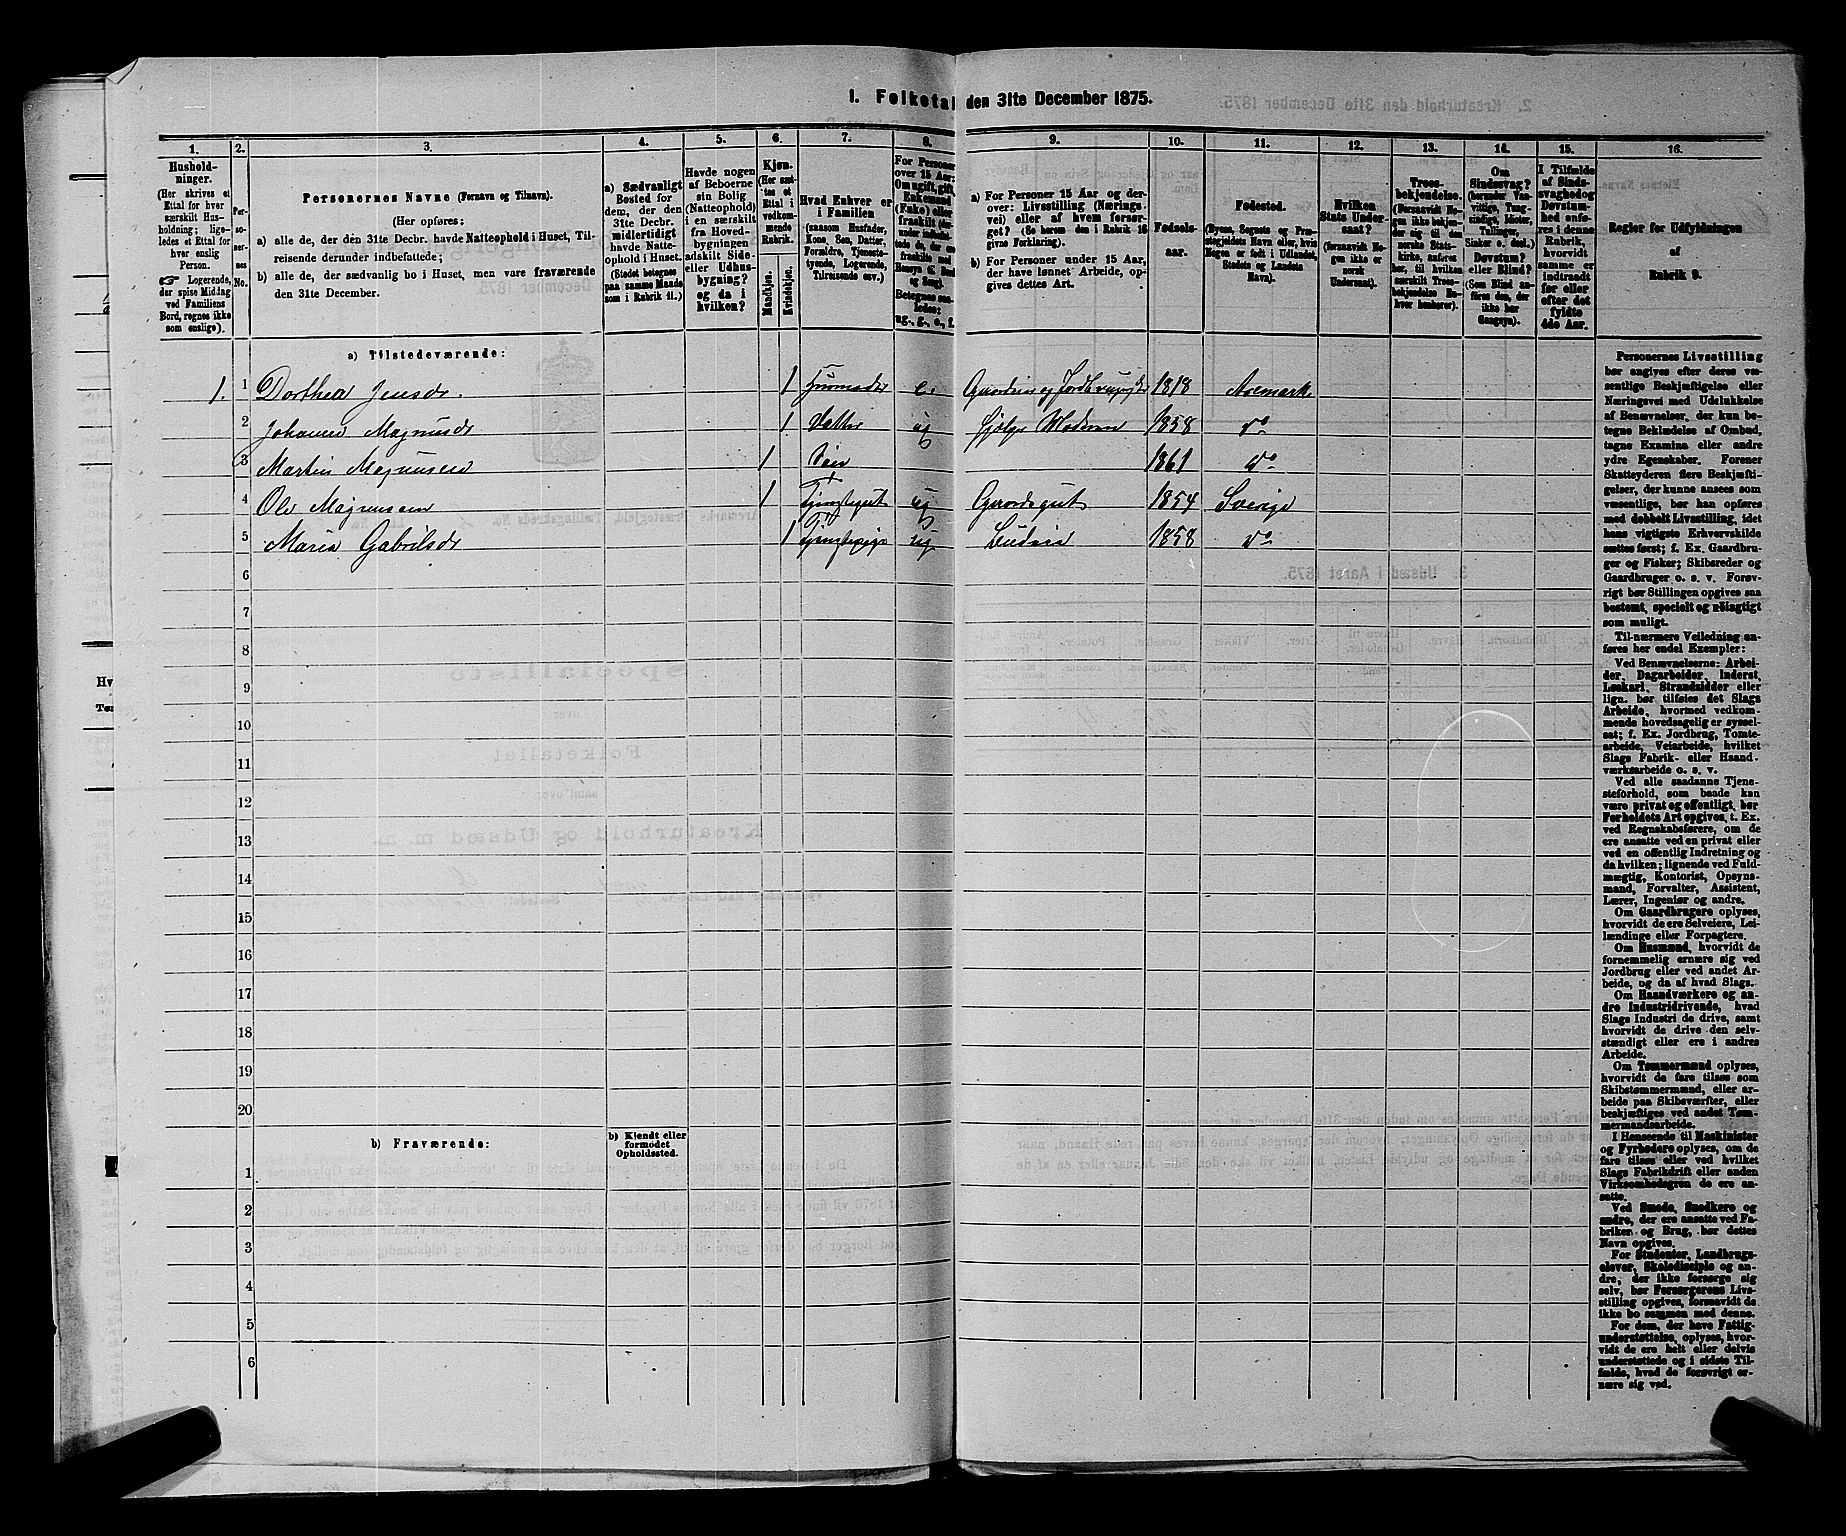 1. Folketal den 31te December 1875.
1. 2. 3. 4. 5. 6. 7. 8. 9. 10. 11. 12. 13. 14. 15. 16.
Hushold-
ninger.
(Her skrives et
Ettal for hver
særskilt Hus-
holdning; lige-
ledes et Ettal for
hver enslig
Person.
☞ Logerende,
der spise Middag
ved Familiens
Bord, regnes ikke
som enslige).
Per-
so-
ner-
nes
No.
Personernes Navne (Fornavn og Tilnavn).
(Her opføres:
a) alle de, der den 31te Decbr. havde Natteophold i Huset, Til-
reisende derunder indbefattede;
b) alle de, der sædvanlig bo i Huset, men vare fraværende
den 31te December.
a) Sædvanligt
Bosted for
dem, der den
31te Decbr.
midlertidigt
havde Natte-
ophold i Huset.
(Stedet betegnes
paa samme Maade
som i Rubrik 11.)
Havde nogen
af Beboerne
sin Bolig
(Natteophold)
i en særskilt
fra Hoved-
bygningen
adskilt Side-
eller Udhus-
bygning?
og da i
hvilken?
Kjøn.
(Her sæt-
tes et
Ettal i
vedkom-
mende
Rubrik.
Mandkjøn.
Kvindekjøn.
Hvad Enhver er
i Familien
(saasom Husfader,
Kone, Søn, Datter,
Forældre, Tjeneste-
tyende, Logerende,
Tilreisende osv.)
For Personer
over 15 Aar:
Om ugift, gift,
Enkemand
(Enke) eller
fraskilt
Betegnes saa-
ledes:
ug., g., e., f.
a) For Personer 15 Aar og der-
over: Livsstilling (Nærings-
vei) eller af hvem forsør-
get? (Se herom den i Rubrik 16
givne Forklaring).
b) For Personer under 15 Aar,
der have lønnet Arbeide, op-
gives dettes Art.
Fødsels-
aar.
Fødested.
(Byens, Sognets og Præ-
stegjeldets Navn eller, hvis
Nogen er født i Udlandet,
Stedets og Landets
Navn).
Hvilken
Stats Under-
saat?
(forsaavidt No-
gen ikke er
norsk
Undersaat).
Troes-
bekjendelse.
(Forsaavidt No-
gen ikke beken-
der sig til den
norske Stats-
kirke, anføres
her, til hvilken
særskilt Troes-
bekjendelse En-
hver henhører).
Om
Sindssvag?
(herunder Van-
vittige, Tung-
sindige, Idioter,
Tullinger,
Sinker o. desl.)
Døvstum?
eller Blind?
(Som Blind an-
føres den, der
ikke har
Gangsyn).
I Tilfælde
af Sinds-
svaghed og
Døvstum-
hed anfø-
res i denne
Rubrik,
hvorvidt
samme er
indtraadt
før eller
efter det
fyldte
4de Aar.
Regler for Udfyldningen
af
Rubrik 9.
a) Tilstedeværende:
1. 1 Dorthea Jensdr. 1 Huusmoder e. Gaardeier og Jordbruger 1818 Aremark
2 Johanne Magnusdr 1 Datter ug hjælper Moderen 1858 do
3 Martin Magnusen 1 Søn 1861 do
4 Ole Magnussen 1 Tjenstegut ug Gaardsgut 1854 Sverige
5 Maria Gabrilsdr 1 Tjenstepige ug Budeie 1858 do
6
7
8
9
10
11
12
13
14
15
16
17
18
19
20
b) Fraværende:
b) Kjendt eller
formodet
Opholdssted.
1
2
3
4
5
6
Personernes Livsstilling
bør angives efter deres væ-
sentlige Beskjæftigelse eller
Næringsvei med Udelukkelse
af Benævnelser, der kun be-
tegne Beklædelse af Ombud,
tagne Examina eller andre
ydre Egenskaber. Forener
Skatteyderen flere Beskjæfti-
gelser, der kunne ansees som
væsentlige, bør han opføres
med dobbelt Livsstilling, idet
hans vigtigste Erhvervskilde
sættes først; f. Ex. Gaardbru-
ger og Fisker; Skibsreder og
Gaardbruger o. s. v. Forøv-
rigt bør Stillingen opgives saa
bestemt, specielt og nøiagtigt
som muligt.
Til nærmere Veiledning an-
føres her endel Exempler:
Ved Benævnelserne: Arbei-
der, Dagarbeider, Inderst,
Løskarl, Strandsidder eller
lign. bør tilføies det Slags
Arbeide, hvormed vedkom-
mende hovedsagelig er syssel-
sat; f. Ex. Jordbrug, Tomte-
arbeide, Veiarbeide, hvilket
Slags Fabrik- eller Haand-
værksarbeide o. s. v.
Ved alle saadanne Tjene-
steforhold, som baade kan
være privat og offentligt, bør
Forholdets Art opgives, t. Ex.
ved Regnskabsførere, om de
ere ansatte ved en privat eller
ved en offentlig Indretning og
da hvilken; lignende ved Fuld-
mægtig, Kontorist, Opsyns-
mand, Forvalter, Assistent,
Lærer, Ingeniør og andre.
Om Gaardbrugere oplyses,
hvorvidt de ere Selveiere, Lei-
lændinge eller Forpagtere.
Om Husmænd, hvorvidt de
fornemmelig ernære sig ved
Jordbrug eller ved andet Ar-
beide, og da af hvad Slags.
Om Haandværkere og an-
dre Industridrivende, hvad
Slags Industri de drive, samt
hvorvidt de drive den selv-
stændigt eller ere i andres
Arbeide.
Om Tømmermænd oplyses,
hvorvidt de fare tilsøs som
Skibstømmermænd, eller ar-
beide paa Skibsværfter, eller
beskjæftiges ved andet Tøm-
mermandsarbeide.
I Henseende til Maskinister
og Fyrbødere oplyses, om de
fare tilsøs eller ved hvilket
Slags Fabrikdrift eller anden
Virksomhedsgren de ere an-
satte.
Ved Smede, Snedkere og
andre, der ere ansatte ved Fa-
briker og Brug, bør dettes
Navn opgives.
For Studenter, Landbrugs-
elever, Skoledisciple og an-
dre, der ikke forsørge sig
selv, bør Forsørgerens Livs-
stilling opgives, forsaavidt de
ikke bo sammen med denne.
For dem, der have Fattig-
understøttelse, oplyses, hvor-
vidt de ere helt eller delvis
understøttede og i sidste Til-
fælde, hvad de forøvrigt er-
nære sig ved.